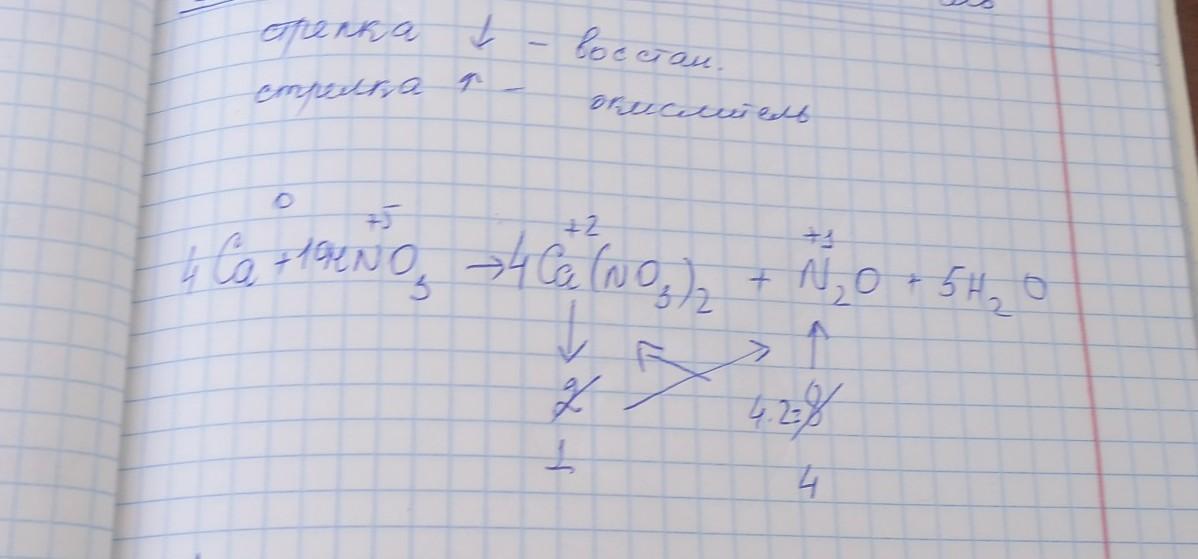 стрелка ↓ - восстан.
стрелка ↑ - окислитель
0 +5 +2 +1
4Ca + 10HNO3 → 4Ca(NO3)2 + N2O + 5H2O
↓ ↑
2 4·2=8
1 4